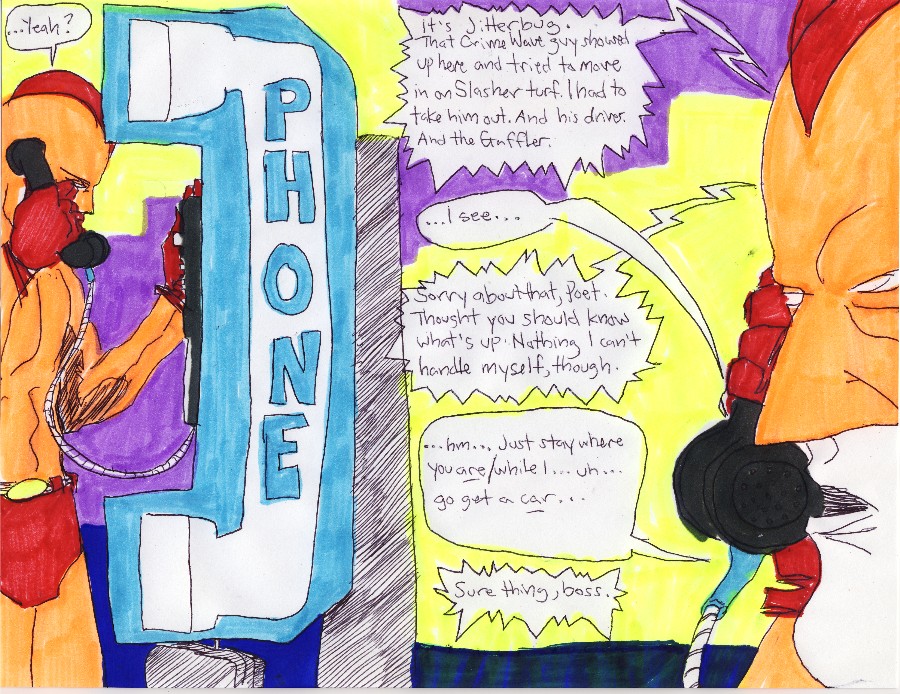 ...Yeah?
PHONE
It's Jitterbug.
That Crime Wave guy showed
up here and tried to move
in on Slasher turf. I had to
take him out. And his driver.
And the Gaffler.
...I see...
Sorry about that, Poet.
Thought you should know
what's up. Nothing I can't
handle myself, though.
...hm... Just stay where
you are/while I... uh...
go get a car...
Sure thing, boss.